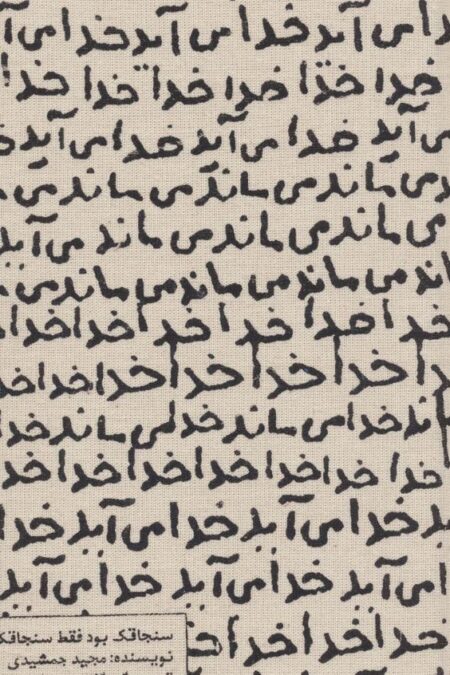 خدا می آید خدا می آید خدا می آ
خدا خدا خدا خدا خدا خدا
می آید خدا می آید خدا می آید
می ماند می ماند می ماند می
می ماند می ماند می ماند می آید
ماند می ماند می ماند می ماند می
خدا خدا خدا خدا خدا خدا
خدا خدا خدا خدا خدا خدا
ماند خدا می ماند خدا می ماند خدا
خدا خدا خدا خدا خدا خدا خدا
خدا می آید خدا می آید خدا
می آید خدا می آید خدا می آید
خدا خدا خدا خدا
سنجاقک بود فقط سنجاقک
نویسنده: مجید جمشیدی